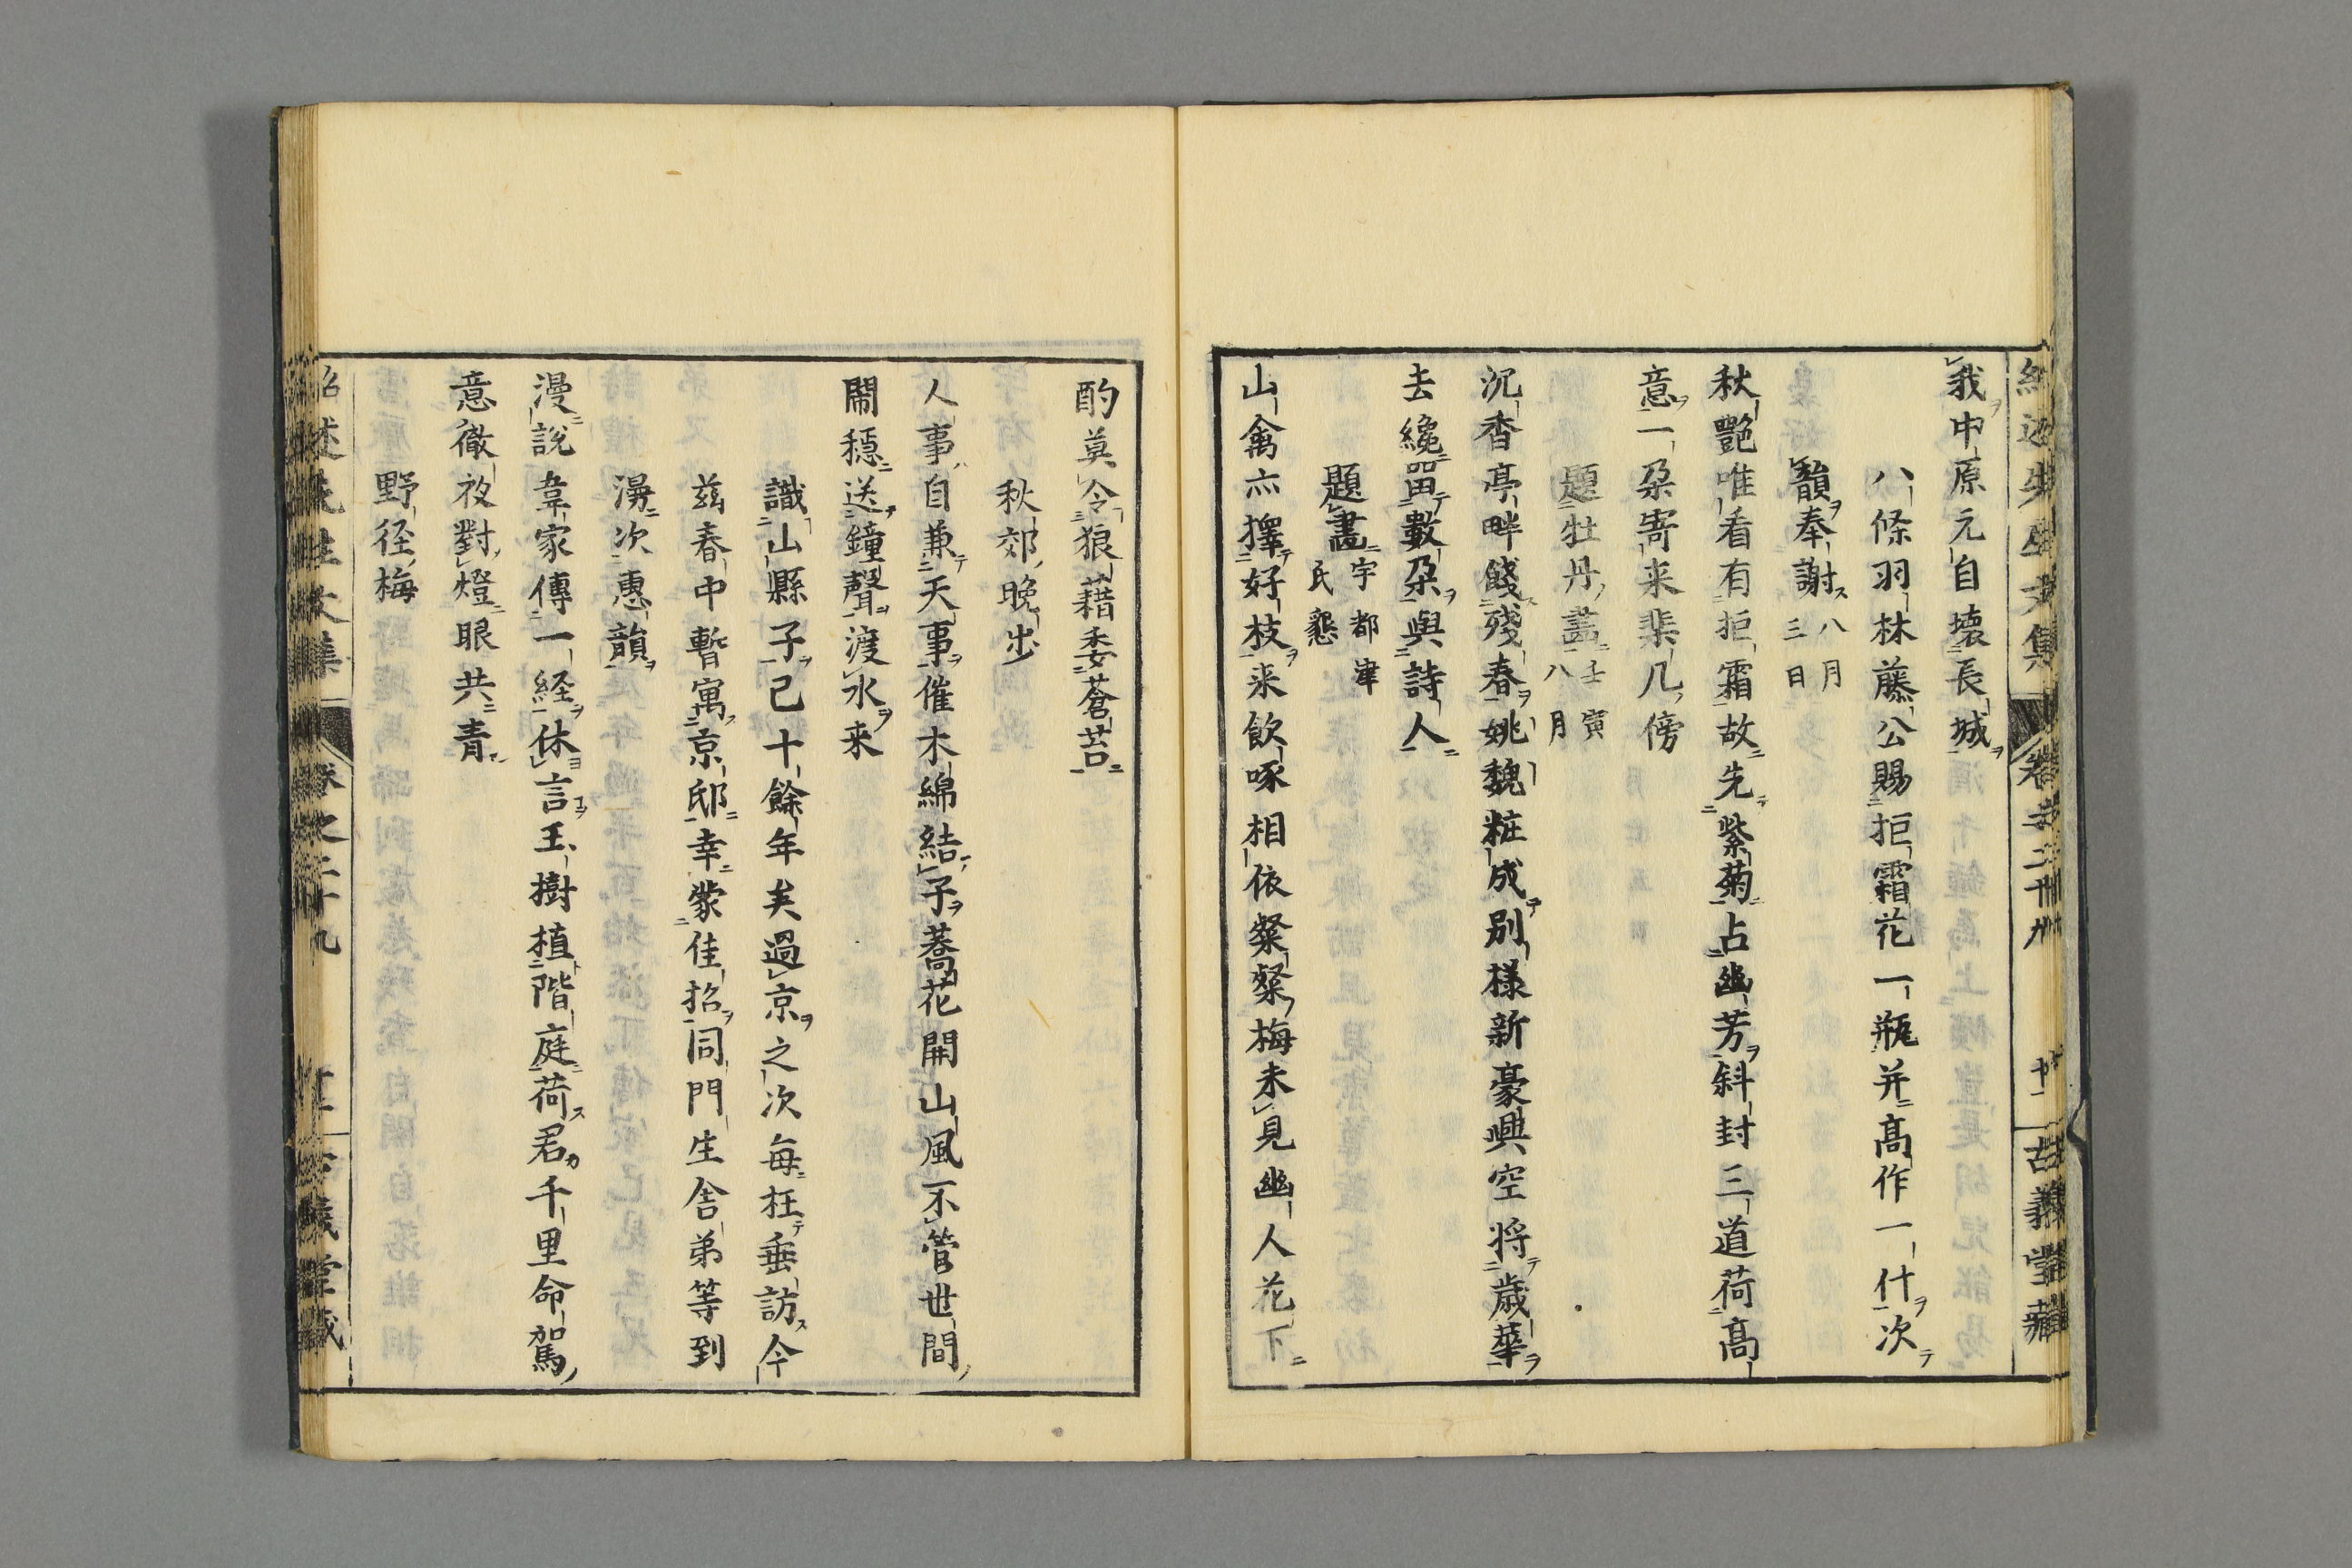 我中原元自壊長城
八條羽林藤公賜拒霜花一瓶并高作一什次
韻奉謝八月三日
秋艶唯看有拒霜故先紫菊占幽芳斜封三道荷高
意一朶寄来棐几傍
題牡丹畫壬寅八月
沉香亭畔餞残春姚魏粧成別様新豪興空将歳華
去纔留數朶與詩人
題畫宇都津氏懇
山禽亦擇好枝来飲啄相依粲粲梅未見幽人花下
酌莫令狼藉委蒼苔
秋郊晩歩
人事自兼天事催木綿結子蕎花開山風不管世間
鬧穏送鐘聲渡水来
識山縣子已十餘年矣過京之次毎枉垂訪今
茲春中暫寓京邸幸蒙佳招同門生舎弟等到
漫次惠韻
漫説韋家傳一経休言玉樹植階庭荷君千里命駕
意徹夜對燈眼共青
野径梅
紹述先生文集 卷之二十九 古義堂藏